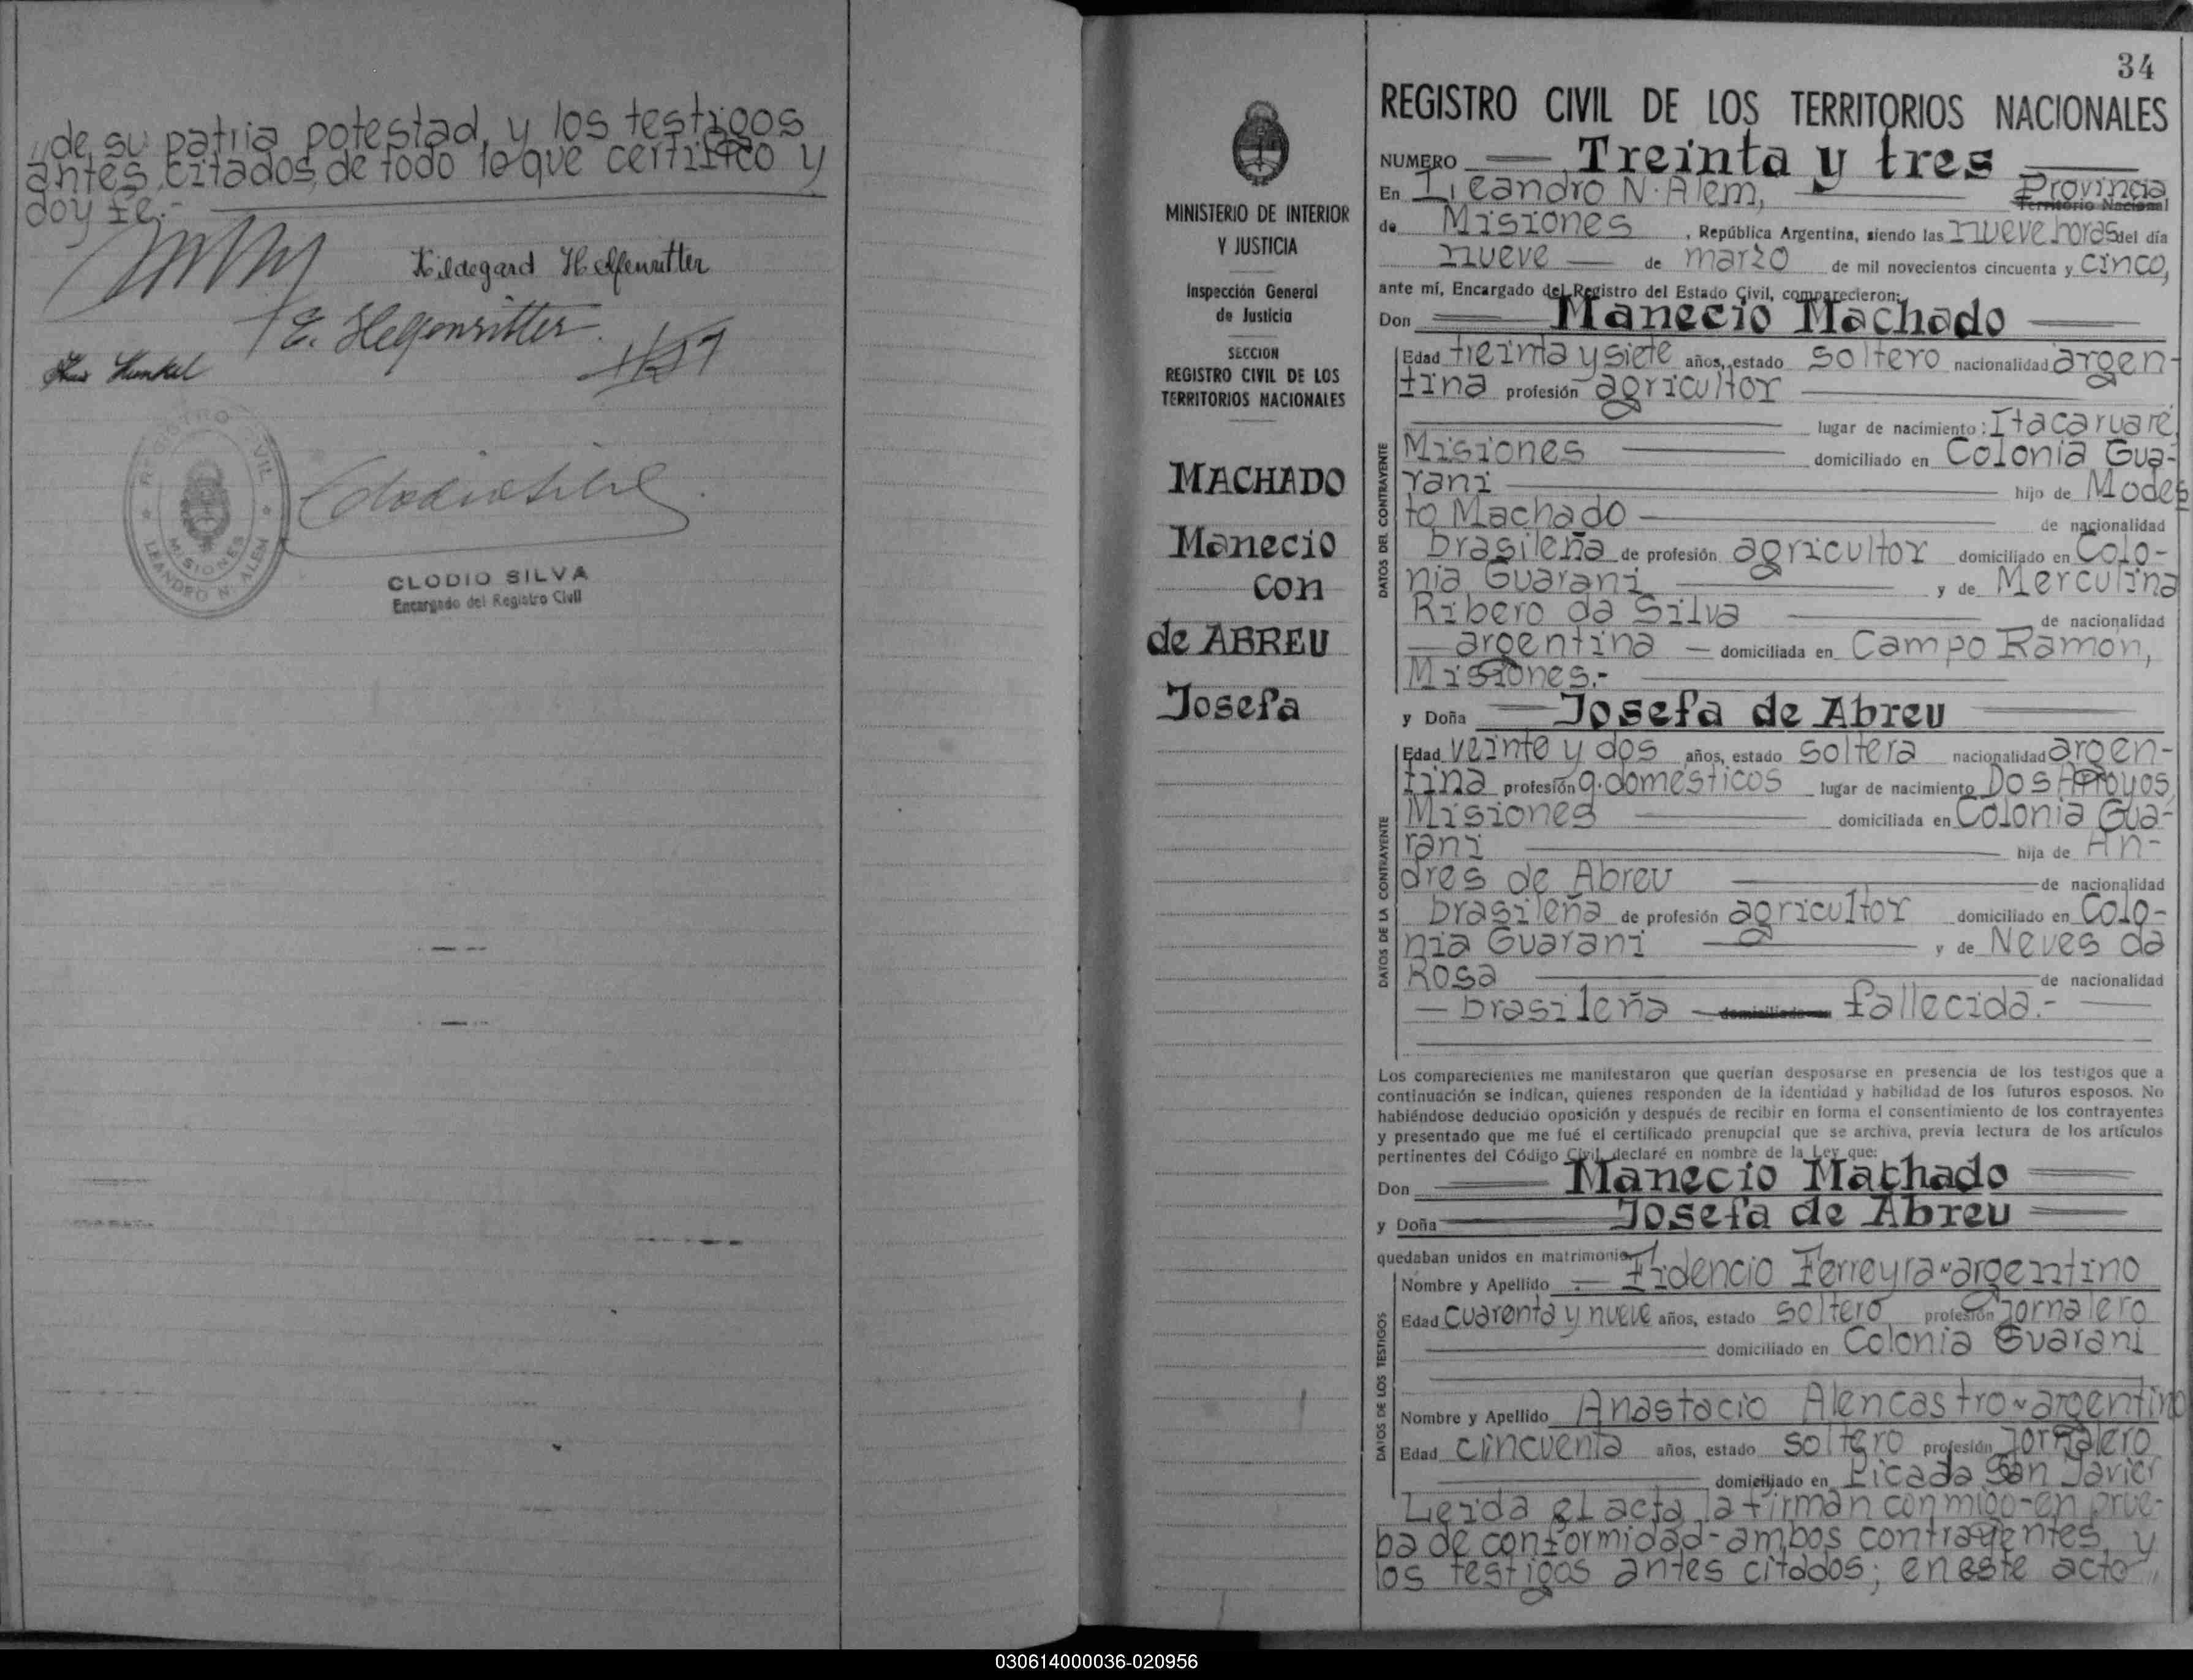 „de su patria potestad, y los testigos
antes citados, de todo lo que certifico y
doy fe.-
Hildegard Helfenritter
E. Helfenritter
Hunkel
REGISTRO CIVIL
MISIONES
LEANDRO N. ALEM
CLODIO SILVA
Encargado del Registro Civil
MINISTERIO DE INTERIOR
Y JUSTICIA
Inspección General
de Justicia
SECCION
REGISTRO CIVIL DE LOS
TERRITORIOS NACIONALES
MACHADO
Manecio
con
de ABREU
Josefa
34
REGISTRO CIVIL DE LOS TERRITORIOS NACIONALES
NUMERO Treinta y tres
En Leandro N. Alem, Provincia
Territorio Nacional
de Misiones, República Argentina, siendo las nueve horas del día
nueve de marzo de mil novecientos cincuenta y cinco,
ante mí, Encargado del Registro del Estado Civil, comparecieron:
Don Manecio Machado
DATOS DEL CONTRAYENTE
Edad treinta y siete años, estado soltero nacionalidad argen-
tina profesión agricultor
lugar de nacimiento: Itacaruaré,
Misiones domiciliado en Colonia Gua-
rani hijo de Modes
to Machado de nacionalidad
brasileña de profesión agricultor domiciliado en Colo-
nia Guarani y de Merculina
Ribero da Silva de nacionalidad
argentina domiciliada en Campo Ramón,
Misiones.-
y Doña Josefa de Abreu
DATOS DE LA CONTRAYENTE
Edad veinte y dos años, estado soltera nacionalidad argen-
tina profesión q. domésticos lugar de nacimiento Dos Arroyos,
Misiones domiciliada en Colonia Gua-
rani hija de An-
dres de Abreu de nacionalidad
brasileña de profesión agricultor domiciliado en Colo-
nia Guarani y de Neves da
Rosa de nacionalidad
brasileña domiciliada en fallecida.-
Los comparecientes me manifestaron que querían desposarse en presencia de los testigos que a
continuación se indican, quienes responden de la identidad y habilidad de los futuros esposos. No
habiéndose deducido oposición y después de recibir en forma el consentimiento de los contrayentes
y presentado que me fué el certificado prenupcial que se archiva, previa lectura de los artículos
pertinentes del Código Civil, declaré en nombre de la Ley que:
Don Manecio Machado
y Doña Josefa de Abreu
quedaban unidos en matrimonio.
DATOS DE LOS TESTIGOS
Nombre y Apellido Fidencio Ferreyra~argentino
Edad cuarenta y nueve años, estado soltero profesión jornalero
domiciliado en Colonia Guarani
Nombre y Apellido Anastacio Alencastro~argentino
Edad cincuenta años, estado soltero profesión jornalero
domiciliado en Picada San Javier
Leida el acta, la firman conmigo-en prue-
ba de conformidad-ambos contrayentes, y
los testigos antes citados; en este acto „
030614000036-020956